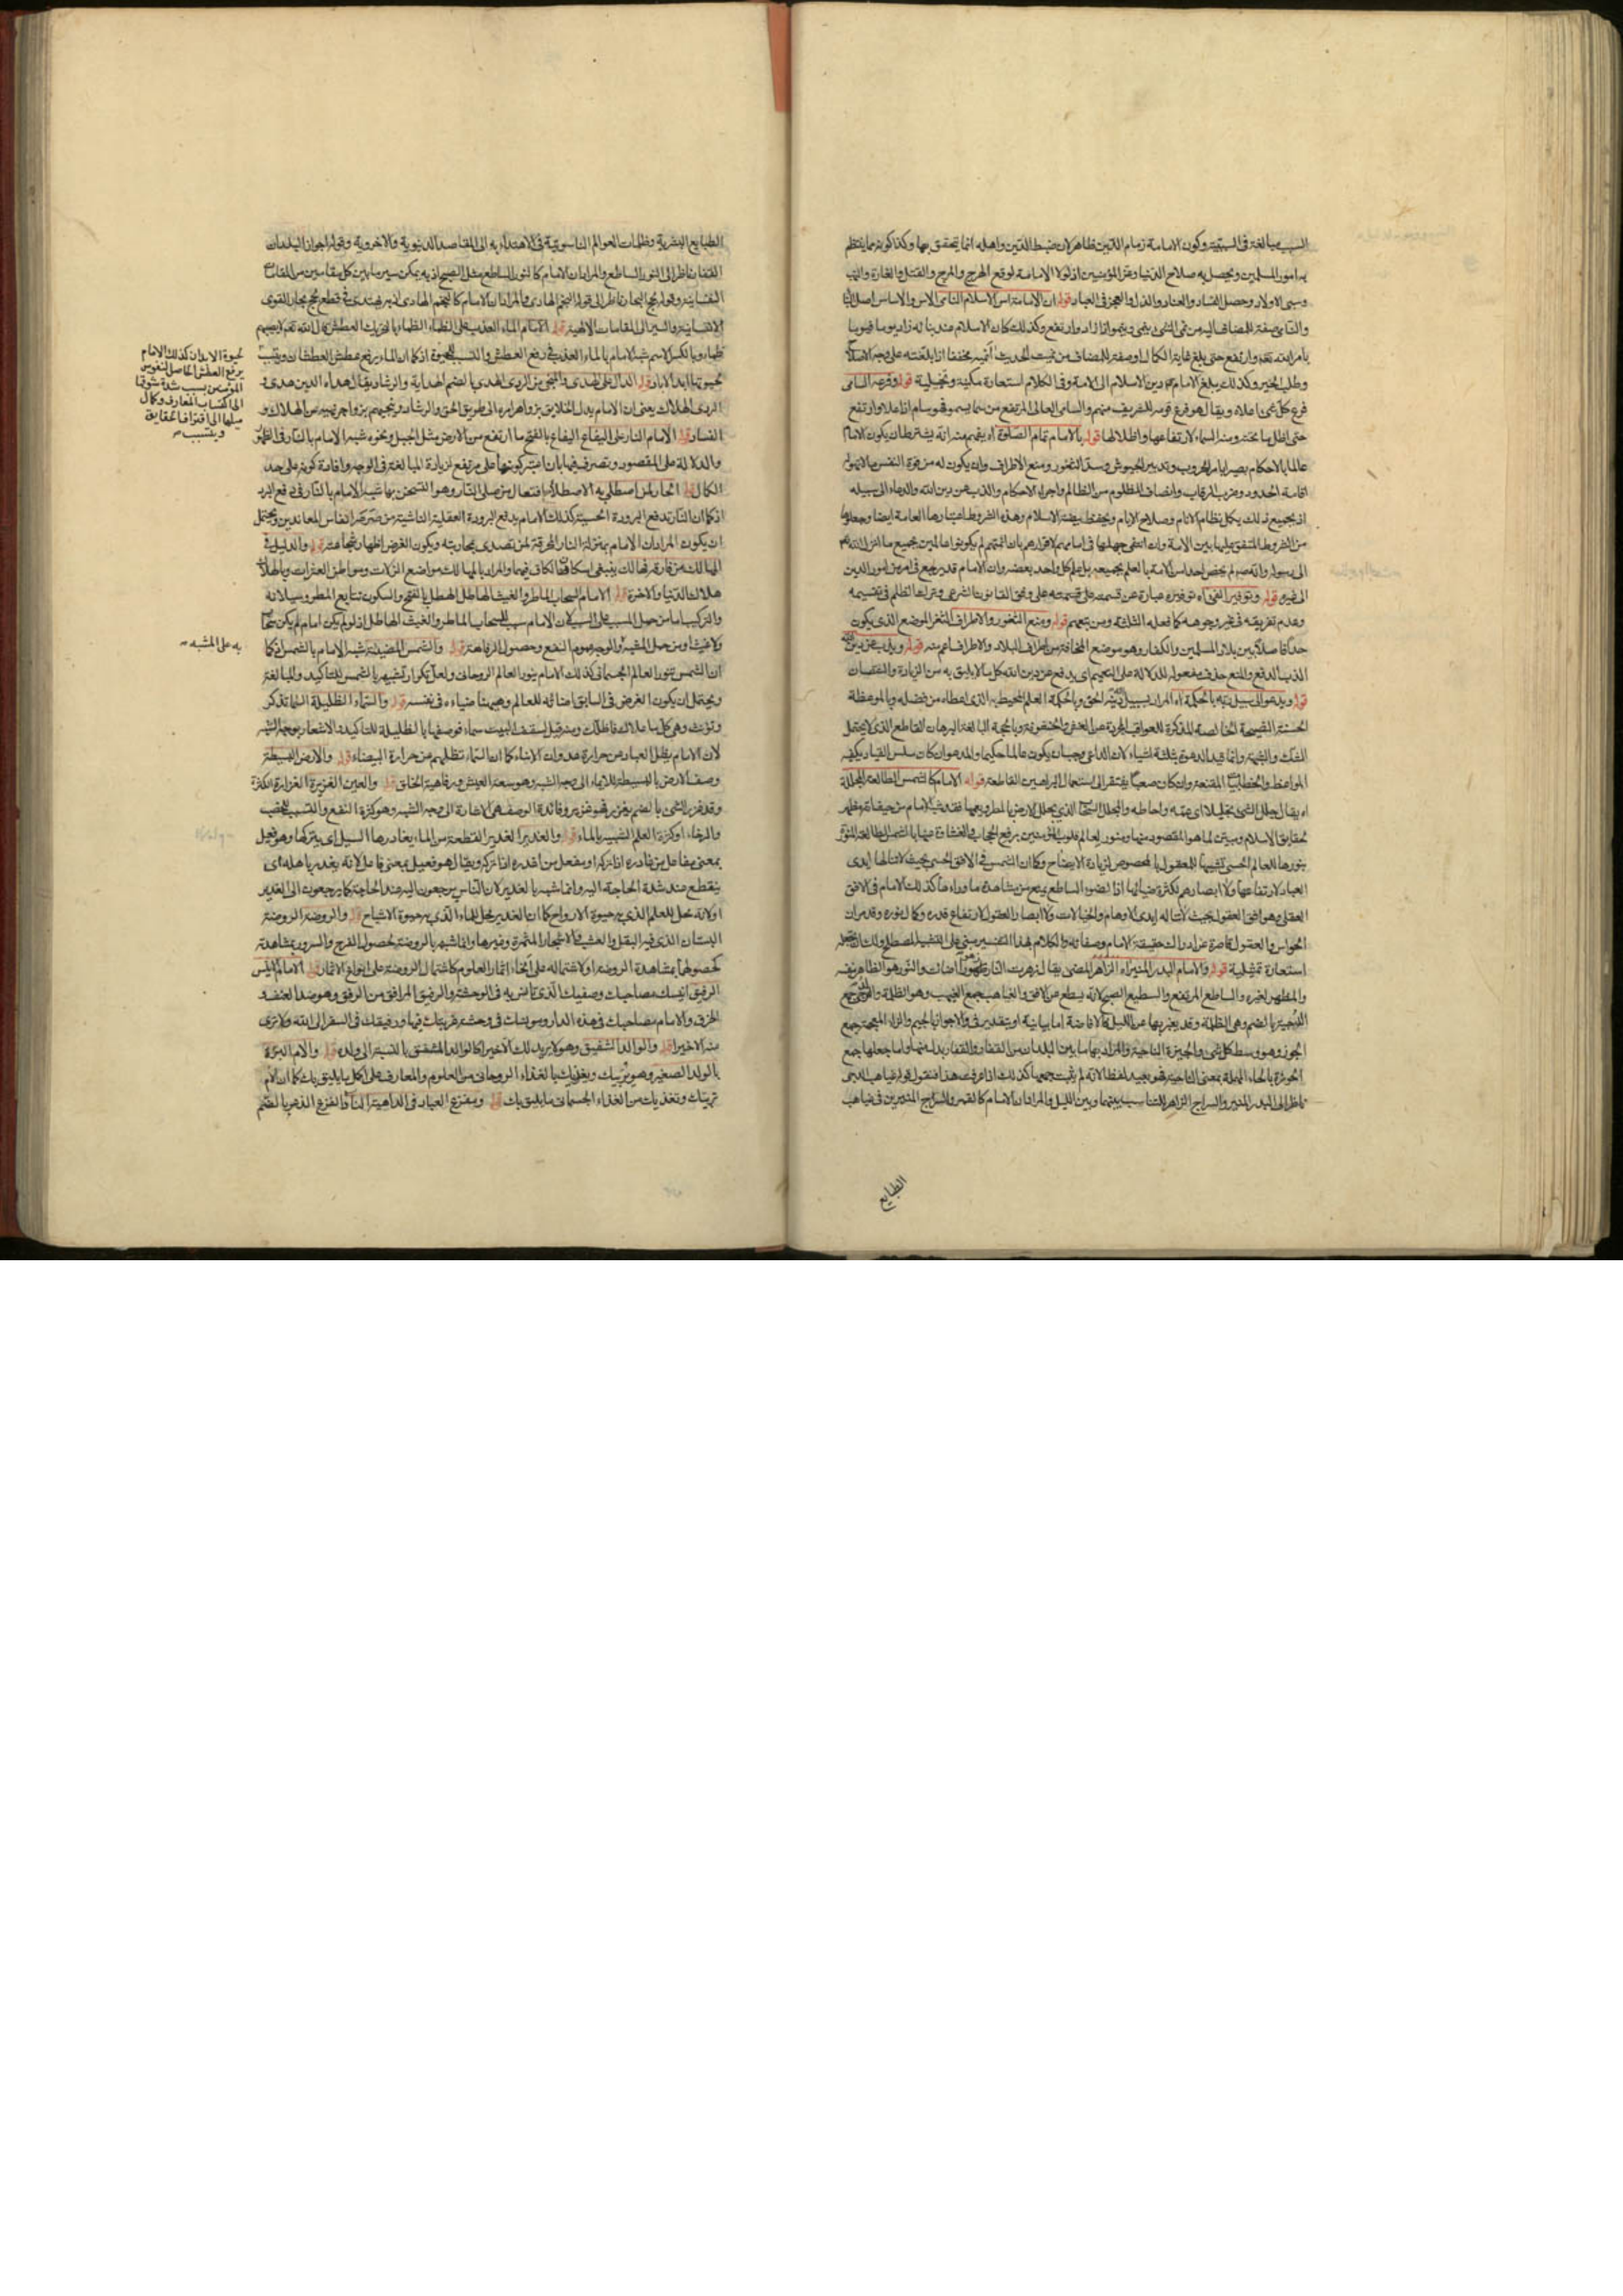 السبب مبالغة في السببية وكون الامامة زمام الدين ظاهر لان ضبط الدين واهله انما يتحقق بها وكذا كونه مما ينتظم
به امور المسلمين ويحصل به صلاح الدنيا وعز المؤمنين اذ لولا الامامة لوقع الهرج والمرج والقتل والغارة والنهب
وسبي الاولاد وحصل الفساد والعناد والذل والعجز في العباد قوله ان الامامة اس الاسلام النامي الاس والاساس اصل البناء
والنامي صفة للمضاف اليه من نمى الشيء ينمي وينمو اذا زاد وارتفع وكذلك كان الاسلام عند بنائه زاد يوما فيوما
بامر الله تعالى وارتفع حتى بلغ غاية الكمال او صفة للمضاف من نميت الحديث انميه مخففا اذا بلغته على وجه الاصلاح
وطلب الخير وكذلك يبلغ الامام دين الاسلام الى الامة وفي الكلام استعارة مكنية وتخييلية قوله وفرعه السامي
فرع كل شيء اعلاه ويقال هو فرع قومه للشريف منهم والسامي العالي المرتفع من سما يسمو فهو سام اذا علا وارتفع
حتى اظل ما تحته ومنه السماء لارتفاعها واظلالها قوله بالامام تمام الصلوة اه يفهم منه انه يشترط ان يكون الامام
عالما بالاحكام بصيرا بامر الحروب وتدبير الجيوش وسد الثغور ومنع الاطراف وان يكون له من قوة النفس ما لا يهوله
اقامة الحدود وضرب الرقاب وانصاف المظلوم من الظالم واجراء الاحكام والذب عن دين الله والدعاء الى سبيله
اذ بجميع ذلك يكمل نظام الانام وصلاح الايام ويحفظ بيضة الاسلام وهذه الشروط اعتبارها العامة ايضا وجعلوها
من الشروط المتفق عليها بين الامة وان انتفى جهلها في امامهم لاقرارهم بان ائمتهم لم يكونوا عالمين بجميع ما انزل الله
الى رسوله وانه لم يخص احدا من الامة بالعلم بجميعه بل علم كل واحد بعضه وان الامام قد يرجع في امر من امور الدين
الى غيره قوله وتوفير الفيء اه توفيره عبارة عن قسمته على قسمته على وفق القانون الشرعي وترك الظلم في تقسيمه
وعدم تفريقه في غير وجوهه كما فعله الثلثة ومن تبعهم قوله ومنع الثغور والاطراف الثغر الموضع الذي يكون
حدا فاصلا بين بلاد المسلمين والكفار وهو موضع المخافة من اطراف البلاد والاطراف اعم منه قوله ويذب عن دين الله
الذب الدفع والمنع حذف مفعوله للدلالة على التعميم اي يدفع عن دين الله كل ما لا يليق به من الزيادة والنقصان
قوله ويدعو الى سبيل ربه بالحكمة اه المراد بسبيل ربه دينه الحق وبالحكمة العلم المحيط به الذي اعطاه من فضله وبالموعظة
الحسنة النصيحة الخالصة المذكرة للعواقب المجردة عن الغش والخشونة وبالحجة البالغة البرهان القاطع الذي لا يحتمل
الشك والشبهة وانما قيد الدعوة بثلثة اشياء لان الداعي وجب ان يكون عالما حكيما والمدعو ان كان سلس القياد يكفيه
المواعظ والخطابيات المقنعة وان كان صعبا يفتقر الى استعمال البراهين القاطعة قوله الامام كالشمس الطالعة المجللة
اه يقال جلل الشيء تجليلا اي عمه واحاطه والمجلل السحاب الذي يجلل الارض بالمطر ويعمها فقد شبه الامام من حيث انه مظهر
لحقايق الاسلام ومبين لما هو المقصود منها ومنور لعالم قلوب المؤمنين برفع الحجاب والغشاوة عنها بالشمس الطالعة المنورة
بنورها للعالم الحسي تشبيها للمعقول بالمحسوس لزيادة الايضاح وكما ان الشمس في الافق الحسي بحيث لا تنالها ايدي
العباد لارتفاعها ولا ابصارهم لكثرة ضيائها اذ الضوء الساطع يمنع من مشاهدة ما وراءه كذلك الامام في الافق
العقلي وهو افق العقول بحيث لا تناله ايدي الاوهام والخيالات ولا ابصار العقول لارتفاع قدره وكمال نوره وقدرات
الحواس والعقول قاصرة عن ادراك حقيقة الامام وصفاته والكلام بهذا التفسير مبني على التشبيه المصطلح ولك ان تجعله
استعارة تمثيلية قوله والامام البدر المنير اه الزاهر المضيء يقال زهرت النار زهورا اضاءت والنور هو الظاهر بنفسه
والمظهر لغيره والساطع المرتفع والسطيع الصبح لانه يسطع من الافق والغياهب جمع الغيهب وهو الظلمة والدجى جمع
الدجية بالضم وهي الظلمة وقد يعبر بها عن الليل فالاضافة اما بيانية او بتقدير في والاجواز بالجيم والزاء المعجمة جمع
الجوز وهو وسط كل شيء والجيزة الناحية والمراد بها ما بين البلدان من القفار والقفار بدل منها واما جعلها جمع
الحوزة بالحاء المهملة بمعنى الناحية فهو بعيد لفظا لانه لم يثبت جمعها كذلك اذا عرفت هذا فنقول قوله غياهب الدجى
ناظر الى البدر المنير والسراج الزاهر للتناسب بينهما وبين الليل والمراد ان الامام كالقمر والسراج المنيرين في غياهب
الطبايع
الطبايع البشرية وظلمات العوالم الناسوتية في الاهتداء به الى المقاصد الدنيوية والاخروية وقوله اجواز البلدان
القفار ناظر الى النور الساطع والمراد ان الامام كالنور الساطع مثل الصبح اذ به يمكن سير ما بين كل مقامين من المقامات
النفسانية وقوله لجج البحار ناظر الى قوله النجم الهادي والمراد ان الامام كالنجم الهادي اذ به يهتدى في قطع لجج بحار القوى
الانسانية والسير الى المقامات الالهية قوله الامام الماء العذب على الظماء الظماء بالتحريك العطش قال الله تعالى لا يصيبهم
ظماء وبالكسر الاسم شبه الامام بالماء العذب في رفع العطش والتسبب للحيوة اذ كما ان الماء يرفع عطش العطشان ويتسبب
لحيوتها ابد الاباد قوله الدال على الهدى والمنجي من الردى الهدى بالضم الهداية والرشاد يقال هداه الدين هدى و
الردى الهلاك يعني ان الامام يدل الخلايق بزواهرا اوامره الى طريق الحق والرشاد وينجيهم بزواجر نهيه عن الهلاك و
الفساد قوله الامام النار على اليفاع اليفاع بالفتح ما ارتفع من الارض مثل الجبل ونحوه شبه الامام بالنار في الظهور
والدلالة على المقصود وتصرف فيها بان اعتبر كونها على مرتفع لزيادة المبالغة في الوجه وافادة كونه على حد
الكمال قوله الحار لمن اصطلى به الاصطلاء افتعال من صلى النار وهو التسخن بها شبه الامام بالنار في دفع البرد
اذ كما ان النار تدفع البرودة الحسية كذلك الامام يدفع البرودة العقلية الناشئة من صرصر انفاس المعاندين ويحتمل
ان يكون المراد ان الامام بمنزلة النار المحرقة لمن تصدى بمحاربته ويكون الغرض اظهار شجاعته قوله والدليل في
المهالك من فارقه فهالك ينبغي اسكان الكاف فيهما والمراد بالمهالك مواضع الزلات ومواطن العثرات وبالهلاك
هلاك الدنيا والاخرة قوله الامام السحاب الماطر والغيث الهاطل الهطل بالفتح والسكون تتابع المطر وسيلانه
والتركيب اما من حمل المسبب على السبب لان الامام سبب للسحاب الماطر والغيث الهاطل اذ لو لم يكن امام لم يكن سحاب
ولا غيث او من حمل المشبه والوجه عموم النفع وحصول الرفاهة قوله والشمس المضيئة شبه الامام بالشمس اذ كما
ان الشمس تنور العالم الجسماني كذلك الامام ينور العالم الروحاني ولعل تكرار تشبيهه بالشمس للتاكيد والمبالغة
ويحتمل ان يكون الغرض في السابق اضائته للعالم وهيهنا ضياءه في نفسه قوله والسماء الظليلة السماء تذكر
وتؤنث وهي كل ما علاك فاظلك ومنه قيل لسقف البيت سماء فوصفها بالظليلة للتاكيد والاشعار بوجه الشبه
لان الامام يظل العباد من حرارة عدوان الاشياء كما ان السماء تظلهم من حرارة البيضاء قوله والارض البسيطة
وصف الارض بالبسيطة للايماء الى وجه الشبه وهو سعة العيش ورفاهية الخلق قوله والعين الغزيرة الغزارة الكثرة
وقد غزر الشيء بالضم يغزر فهو غزير وفائدة الوصف هي الاشارة الى وجه الشبه وهو كثرة النفع والتسبب للخصب
والرخاء او كثرة العلم الشبيه بالماء قوله والغدير الغدير القطعة من الماء يغادرها السيل اي يتركها وهو فعيل
بمعنى مفاعل من غادره اذا تركه او مفعل من اغدره اذا تركه ويقال هو فعيل بمعنى فاعل لانه يغدر باهله اي
ينقطع عند شدة الحاجة اليه وانما شبه بالغدير لان الناس يرجعون اليه عند الحاجة كما يرجعون الى الغدير
او لانه محل للعلم الذي به حيوة الارواح كما ان الغدير محل للماء الذي به حيوة الاشباح قوله والروضة الروضة
البستان الذي فيه البقل والعشب والاشجار المثمرة وغيرها وانما شبه بالروضة لحصول الفرح والسرور بمشاهدته
كحصولهما بمشاهدة الروضة او لاشتماله على انحاء اثمار العلوم كاشتمال الروضة على انواع الاثمار قوله الامام الانيس
الرفيق انيسك مصاحبك وصفيك الذي تانس به في الوحشة والرفيق المرافق من الرفق وهو ضد العنف و
الخرق والامام مصاحبك في هذه الدار ومونسك في وحشة غربتك فيها ورفيقك في السفر الى الله ولا ترى
منه الا خيرا قوله والوالد الشفيق وهو لا يريد لك الا خيرا كالوالد المشفق بالنسبة الى ولده قوله والام البرة
بالولد الصغير وهو يربيك ويغذيك بالغذاء الروحاني من العلوم والمعارف على اكمل ما يليق بك كما ان الام
تربيك وتغذيك من الغذاء الجسماني ما يليق بك قوله ومفزع العباد في الداهية الناد الفزع الذعر بالضم
لحيوة الابدان كذلك الامام
يرفع العطش الحاصل لنفوس
المؤمنين بسبب شدة شوقها
الى اكتساب المعارف وكمال
ميلها الى اقتراف الحقايق
ويتسبب
به على المشبه